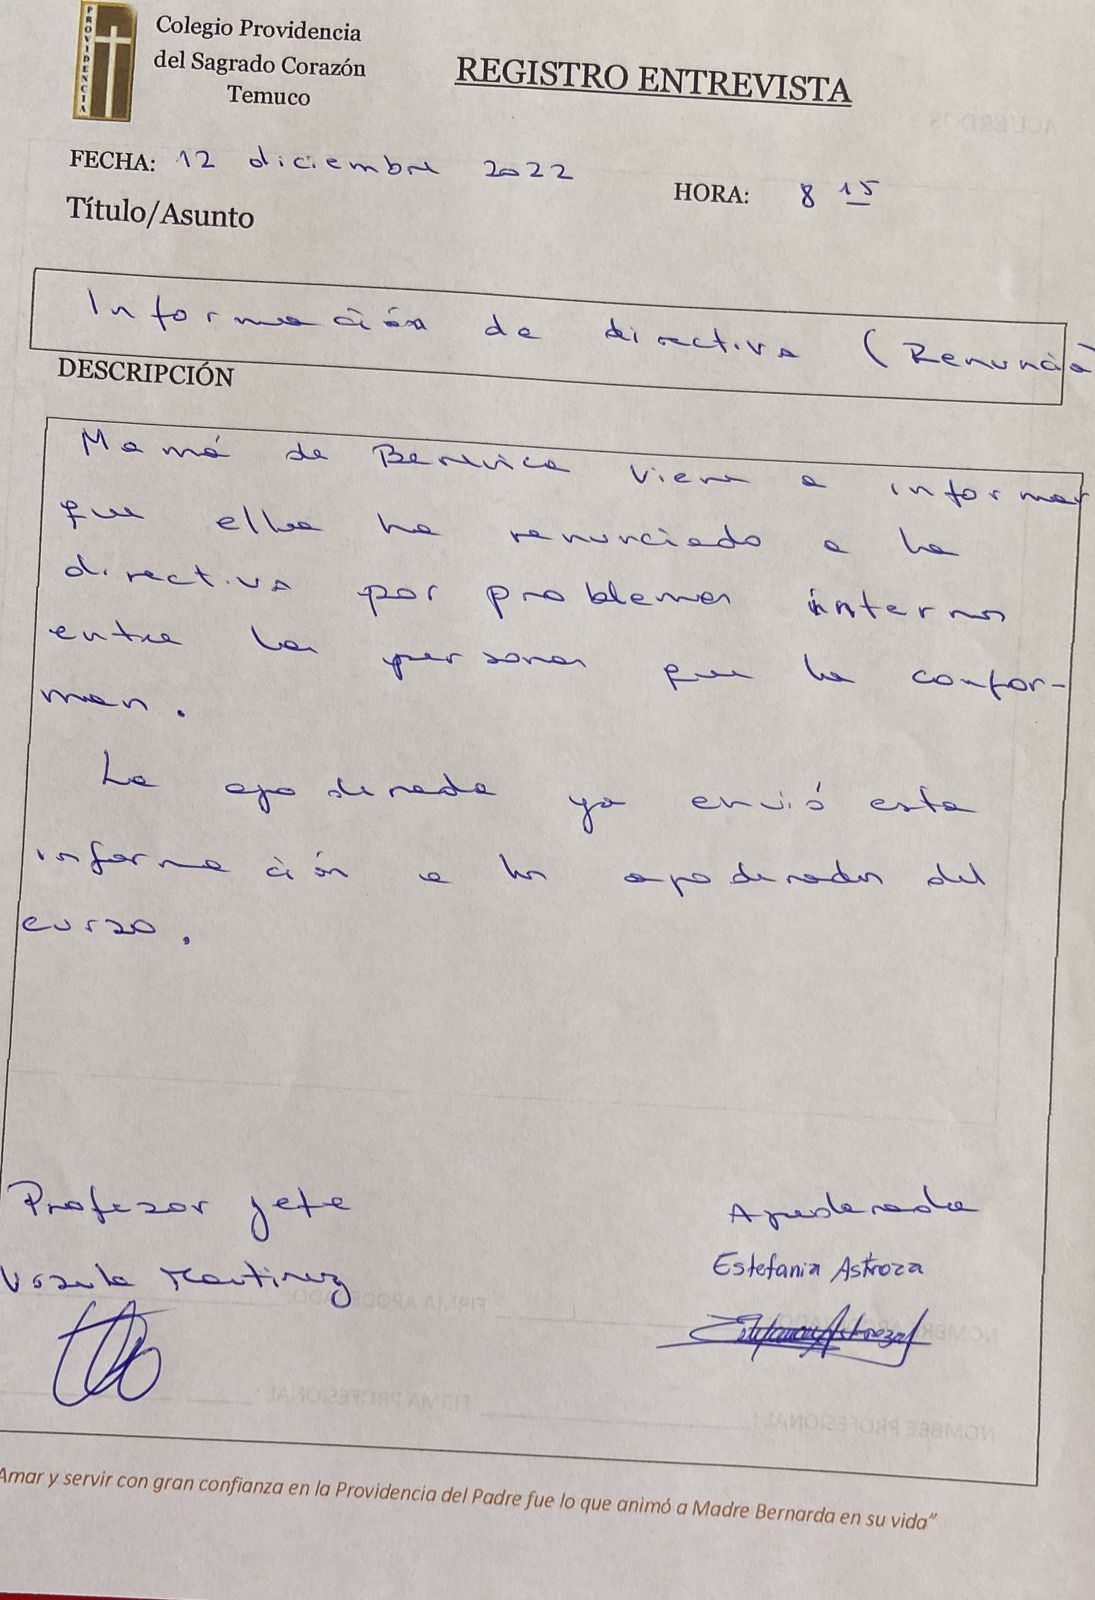 PROVIDENCIA
Colegio Providencia
del Sagrado Corazón
Temuco
REGISTRO ENTREVISTA
FECHA: 12 diciembre 2022
HORA: 8 15
Título/Asunto
Información de directiva (Renuncia)
DESCRIPCIÓN
Mamá de viene a informar
que ella ha renunciado a la
directiva por problemas internos
entre las personas que la confor-
man.
La apoderada ya envió esta
información a los apoderados del
curso.
Profesor jefe
Apoderada
Ursula Martinez
Estefania Astroza
ACUERDOS
FIRMA APODERADO:
FIRMA PROFESIONAL:
NOMBRE PROFESIONAL:
Amar y servir con gran confianza en la Providencia del Padre fue lo que animó a Madre Bernarda en su vida”